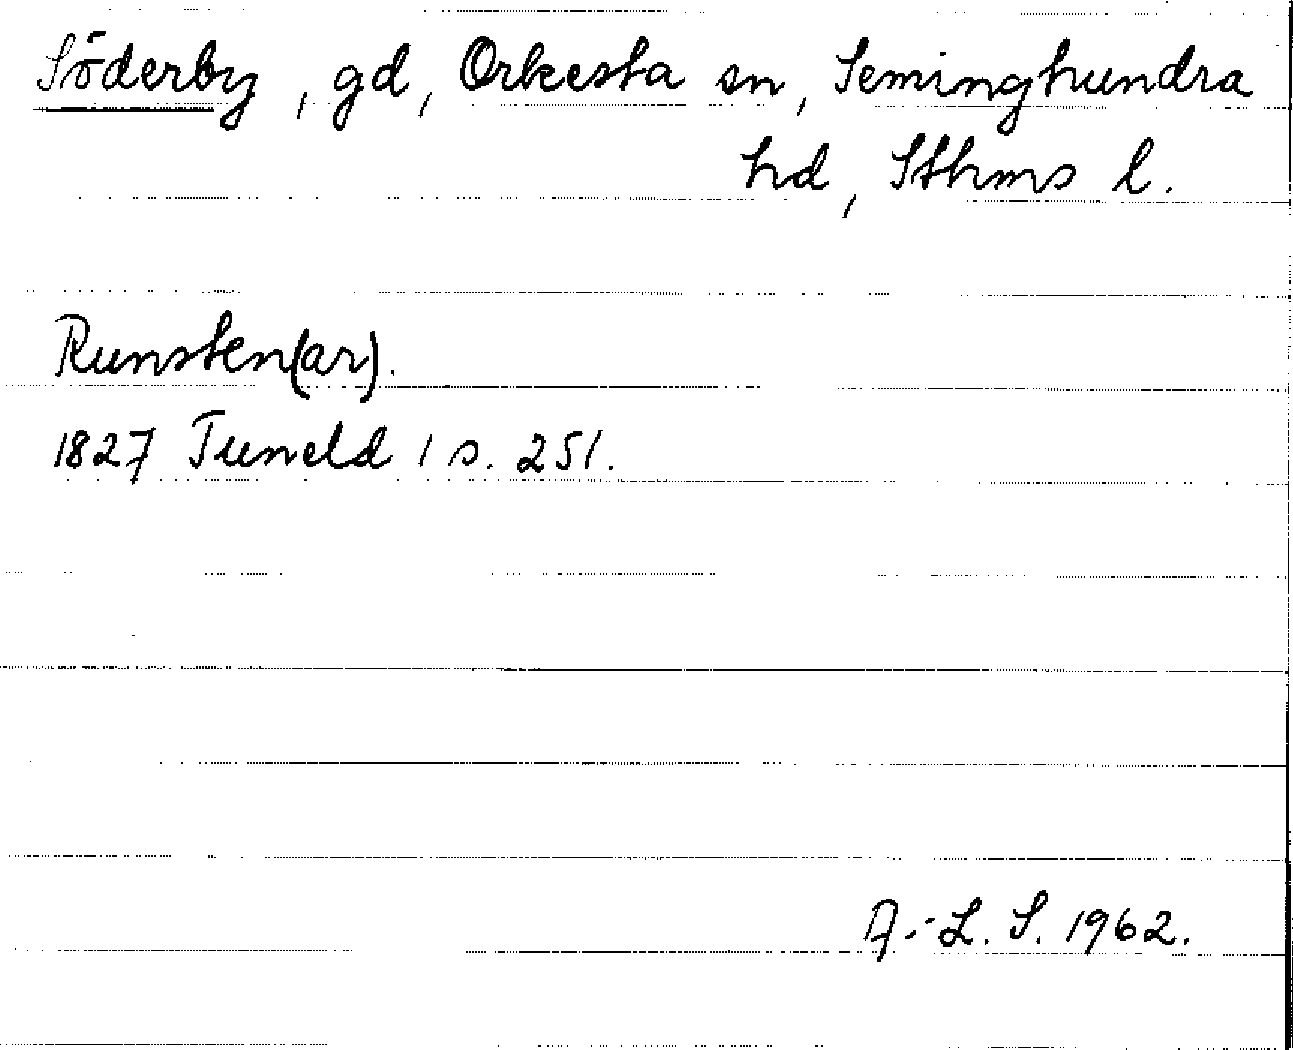 Söderby, gd, Orkesta sn, Seminghundra
hd, Sthms l.
Runsten(ar).
1827 Tuneld 1 s. 251.
A.-L. S. 1962.